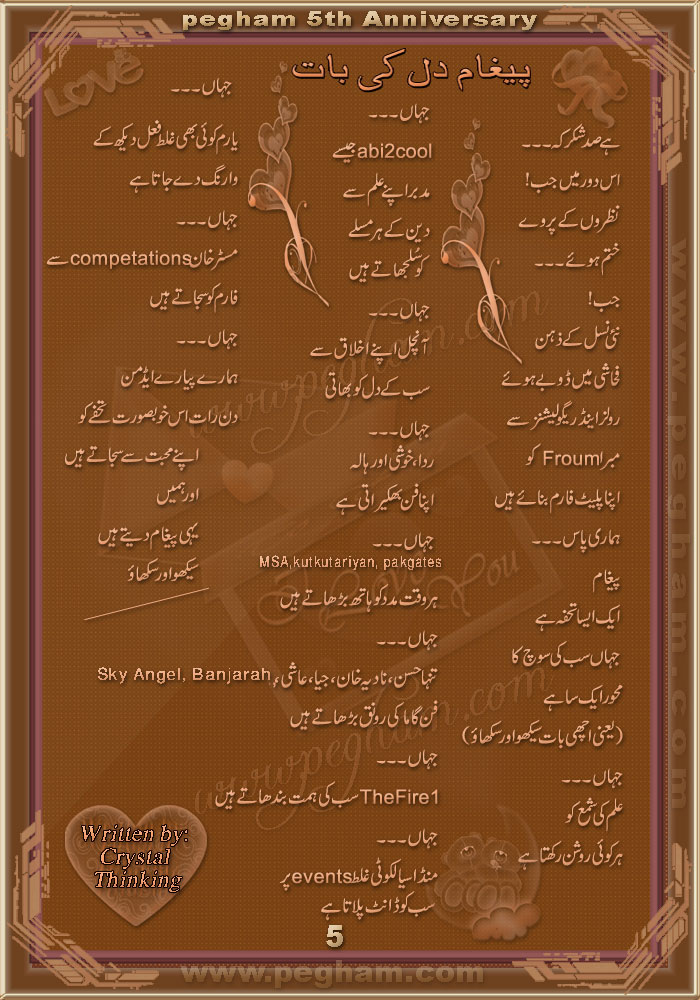 pegham 5th Anniversary
LOVE
پیغام دل کی بات
ہے صد شکر کہ۔۔۔
اس دور میں جب!
نظروں کے پروے
ختم ہوئے۔۔۔
جب!
نئی نسل کے ذہن
فحاشی میں ڈوبے ہوئے
رولز اینڈ ریگولیشنز سے
مبرا Froum کو
اپنا پلیٹ فارم بنائے ہیں
ہماری پاس۔۔۔
پیغام
ایک ایسا تحفہ ہے
جہاں سب کی سوچ کا
محور ایک سا ہے
(یعنی اچھی بات سیکھو اور سکھاؤ)
جہاں۔۔۔
علم کی شمع کو
ہر کوئی روشن رکھتا ہے
جہاں۔۔۔
abi2cool جیسے
مدبر اپنے علم سے
دین کے ہر مسلے
کو سُلجھاتے ہیں
جہاں۔۔۔
آنچل اپنے اخلاق سے
سب کے دل کو بھاتی
جہاں۔۔۔
ردا، خوشی اور ہالہ
اپنا فن بھکیراتی ہے
جہاں۔۔۔
MSA,kutkutariyan, pakgates
ہر وقت مدد کو ہاتھ بڑھاتے ہیں
جہاں۔۔۔
تنہا حسن، نادیہ خان، جیا، عاشی، Sky Angel, Banjarah
فن گاما کی رونق بڑھاتے ہیں
جہاں۔۔۔
TheFire1 سب کی ہمت بندھاتے ہیں
جہاں۔۔۔
منڈا سیالکوٹی غلط events پر
سب کو ڈانٹ پلاتا ہے
جہاں۔۔۔
یارم کوئی بھی غلط فعل دیکھ کے
وارنگ دے جاتا ہے
جہاں۔۔۔
مسٹر خان competations سے
فارم کو سجاتے ہیں
جہاں۔۔۔
ہمارے پیارے ایڈمن
دن رات اس خوبصورت تحفے کو
اپنے محبت سے سجاتے ہیں
اور ہمیں
یہی پیغام دیتے ہیں
سیکھو اور سکھاؤ
Written by:
Crystal
Thinking
5
www.pegham.com
www.pegham.com
www.pegham.com
www.pegham.com
I Love You